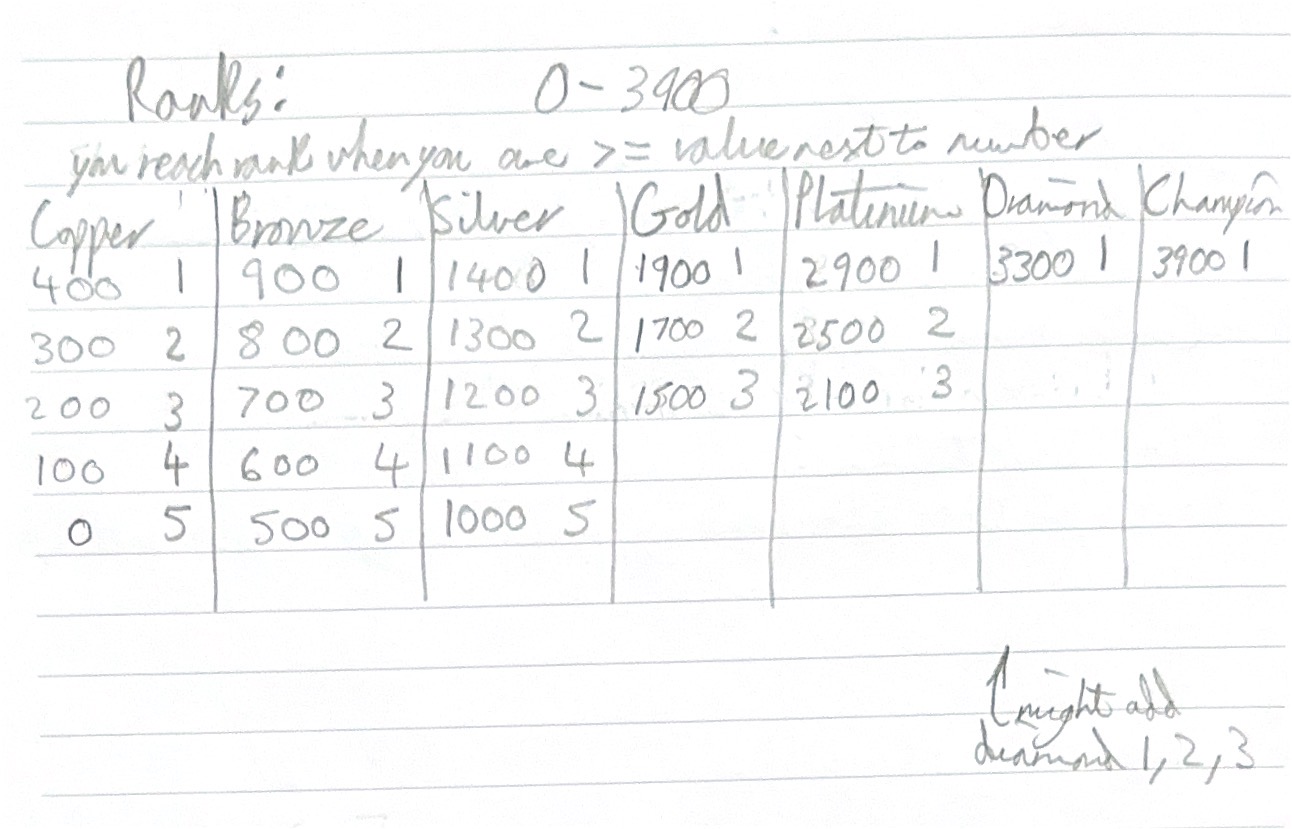 Ranks: 0-3900
you reach rank when you are >= value next to number
Copper Bronze Silver Gold Platinium Diamond Champion
400 1 900 1 1400 1 1900 1 2900 1 3300 1 3900 1
300 2 800 2 1300 2 1700 2 2500 2
200 3 700 3 1200 3 1500 3 2100 3
100 4 600 4 1100 4
0 5 500 5 1000 5
↑ might add
diamond 1, 2, 3